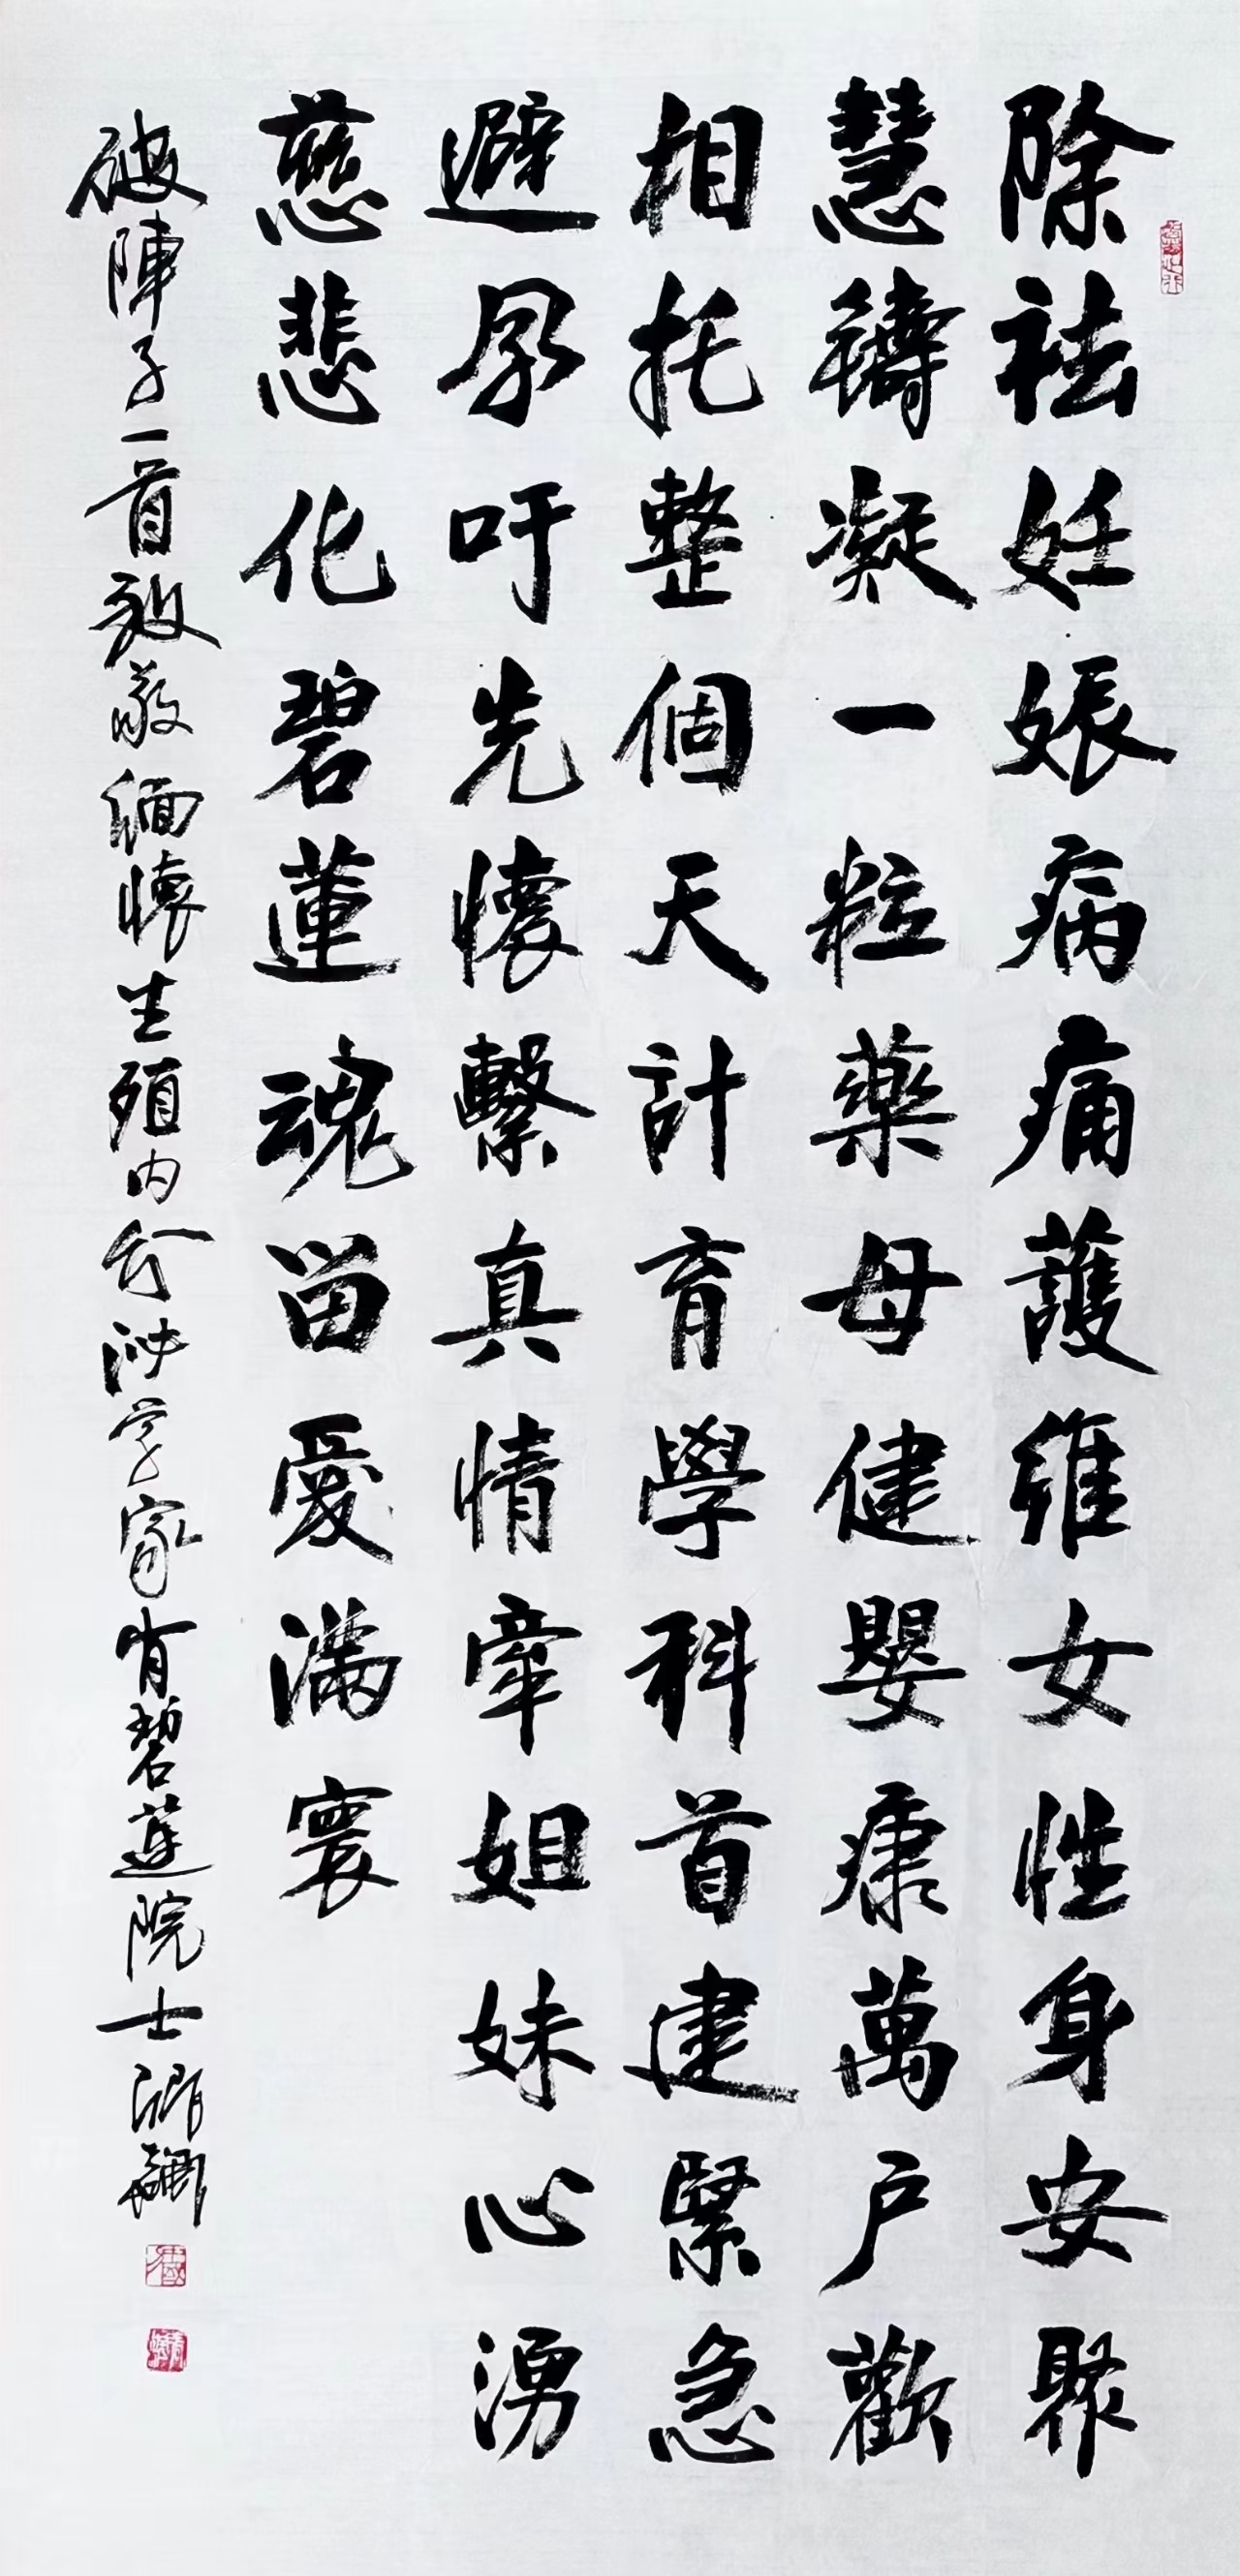 除祛妊娠病痛護維女性身安聚
慧禱凝一粒藥母健嬰康萬戶歡
相托整個天計育學科首建緊急
避孕吁先懷繫真情牽姐妹心湧
慈悲化碧蓮魂留愛滿寰
破陣子一首致敬緬懷生殖內分泌學家肖碧蓮院士